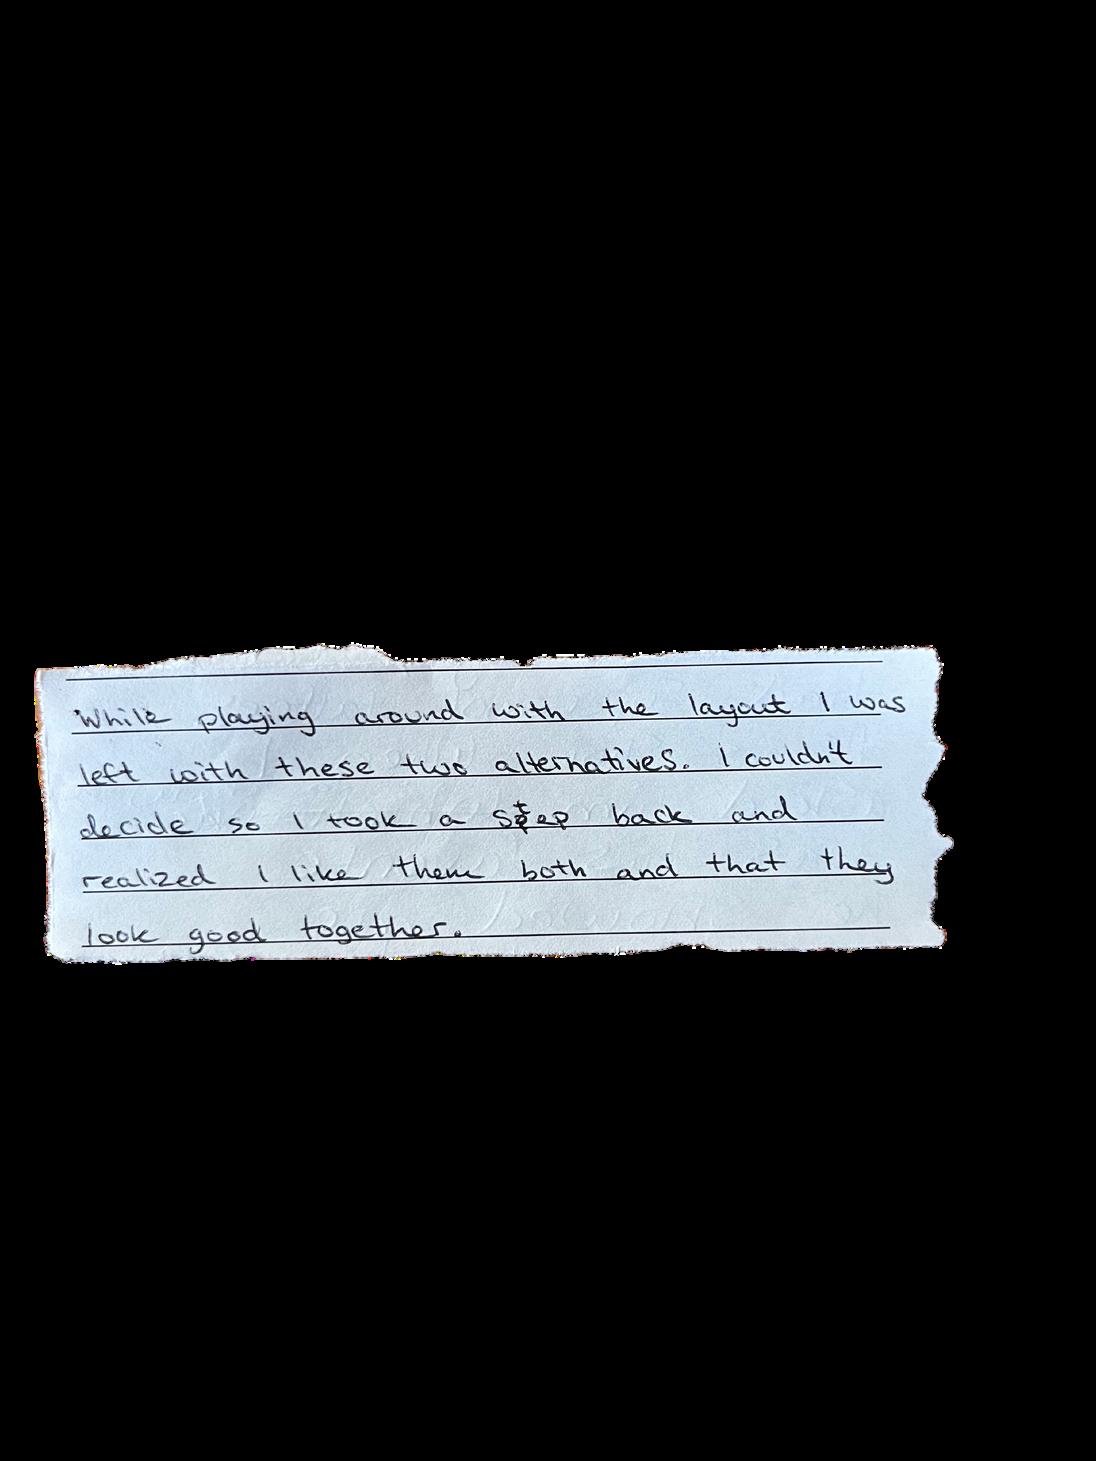 While playing around with the layout I was
left with these two alternatives. I couldn't
decide so I took a step back and
realized I like them both and that they
look good together.